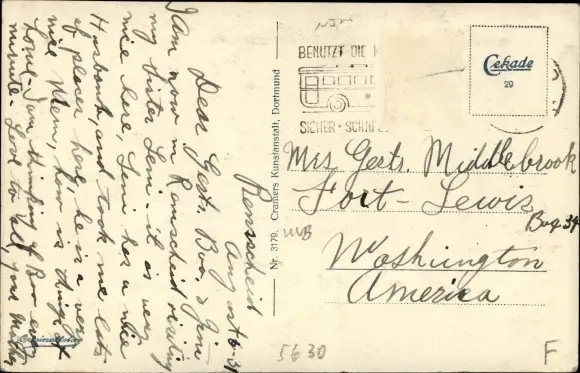 Remsscheid
August 6-31
Dear Gert. Boo, & Jim
I am now in Remscheid visiting
my Sister Leni - it is very
nice here, Leni has a nice
Husband, and took me lots
of placer here, he is a very
nice Man, how is things at
home. I am thinking of Boo every
minute. Love to all, your Mother
Originalfoto
Nr. 3179. Cramers Kunstanstalt, Dortmund
BENUTZT DIE
SICHER · SCHNELL
Cekade
29
Mrs Gert. Middlebrook
Fort-Lewis
Box 34
Washington
America
5630
F